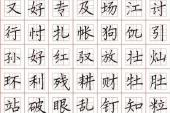 又好专及场江讨
行忖扎帐狗饥引
孙好红驭放壮灿
环利残耕财牡肚
站破眼乱钉知粒